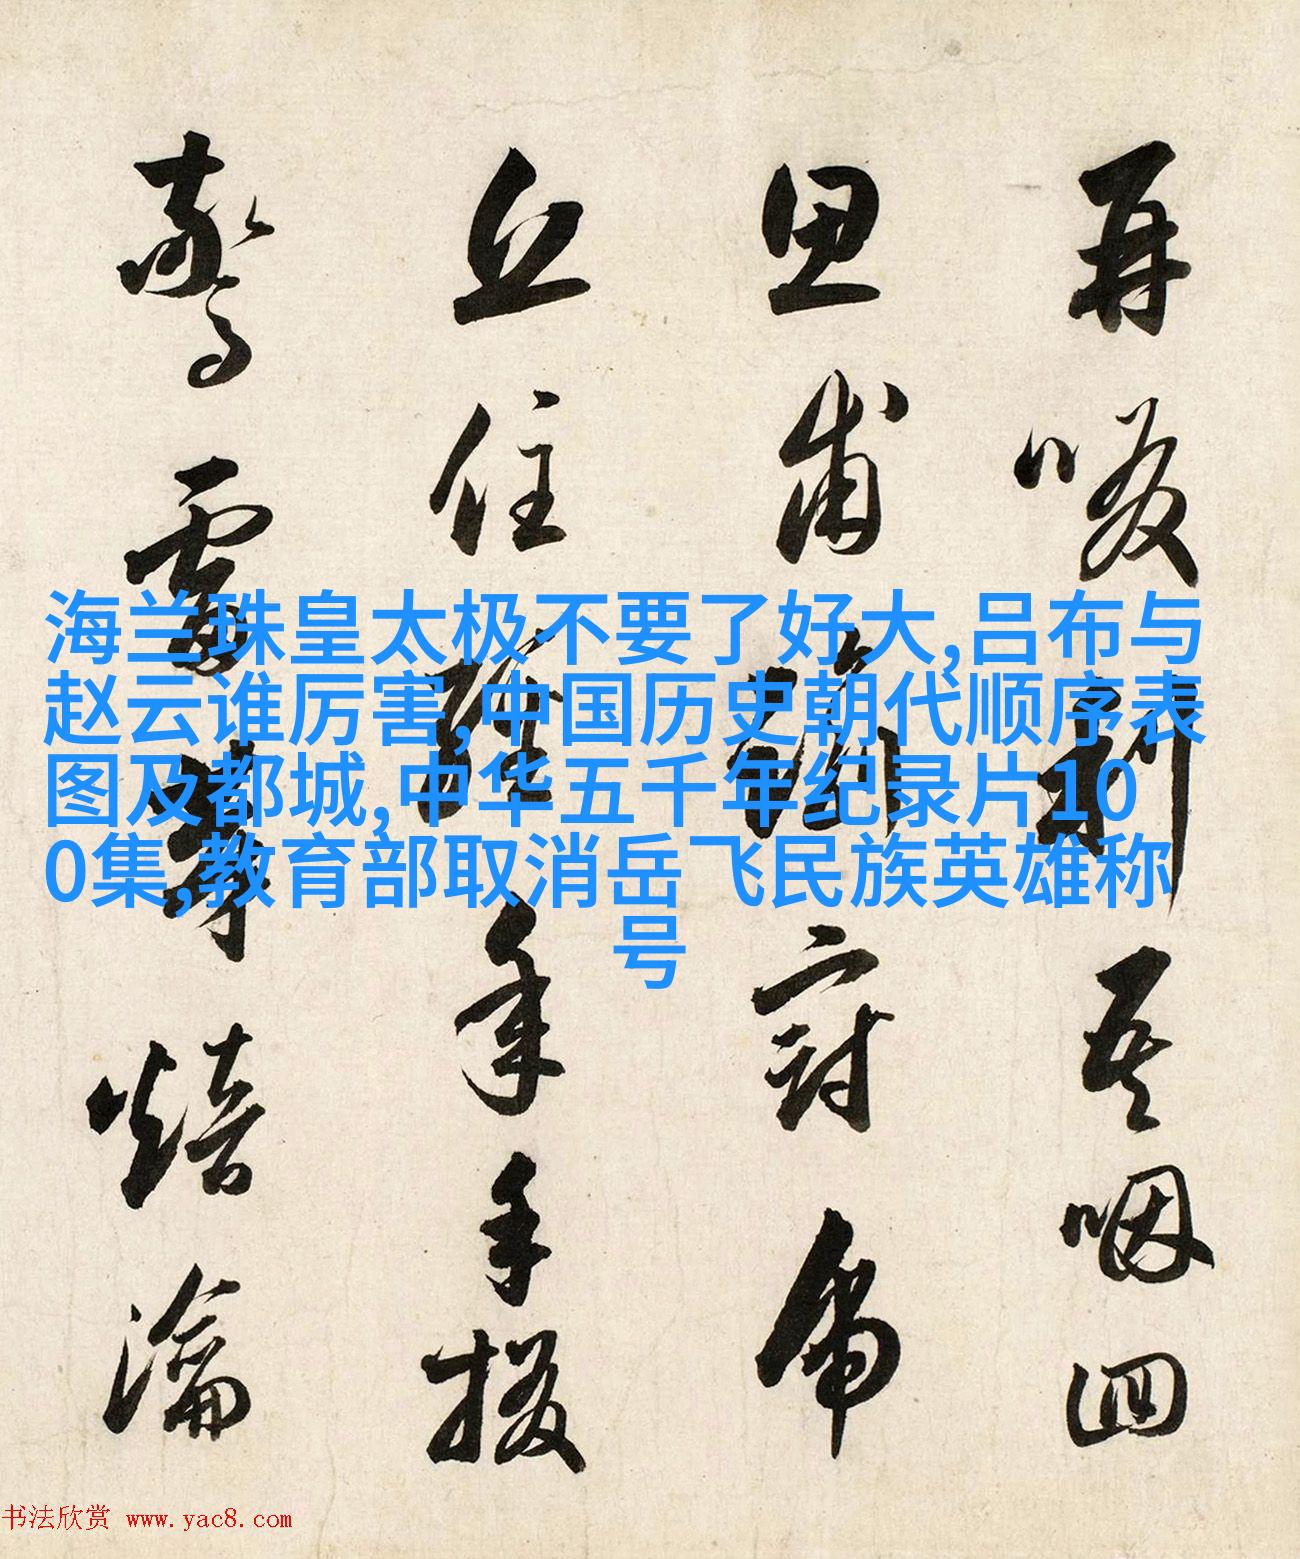 再啜
思甫
丘住經年手掇
驚雷焙瀹
海兰珠皇太极不要了好大,吕布与
赵云谁厉害,中国历史朝代顺序表
图及都城,中华五千年纪录片10
0集,教育部取消岳飞民族英雄称
号
书法欣赏 www.yac8.com